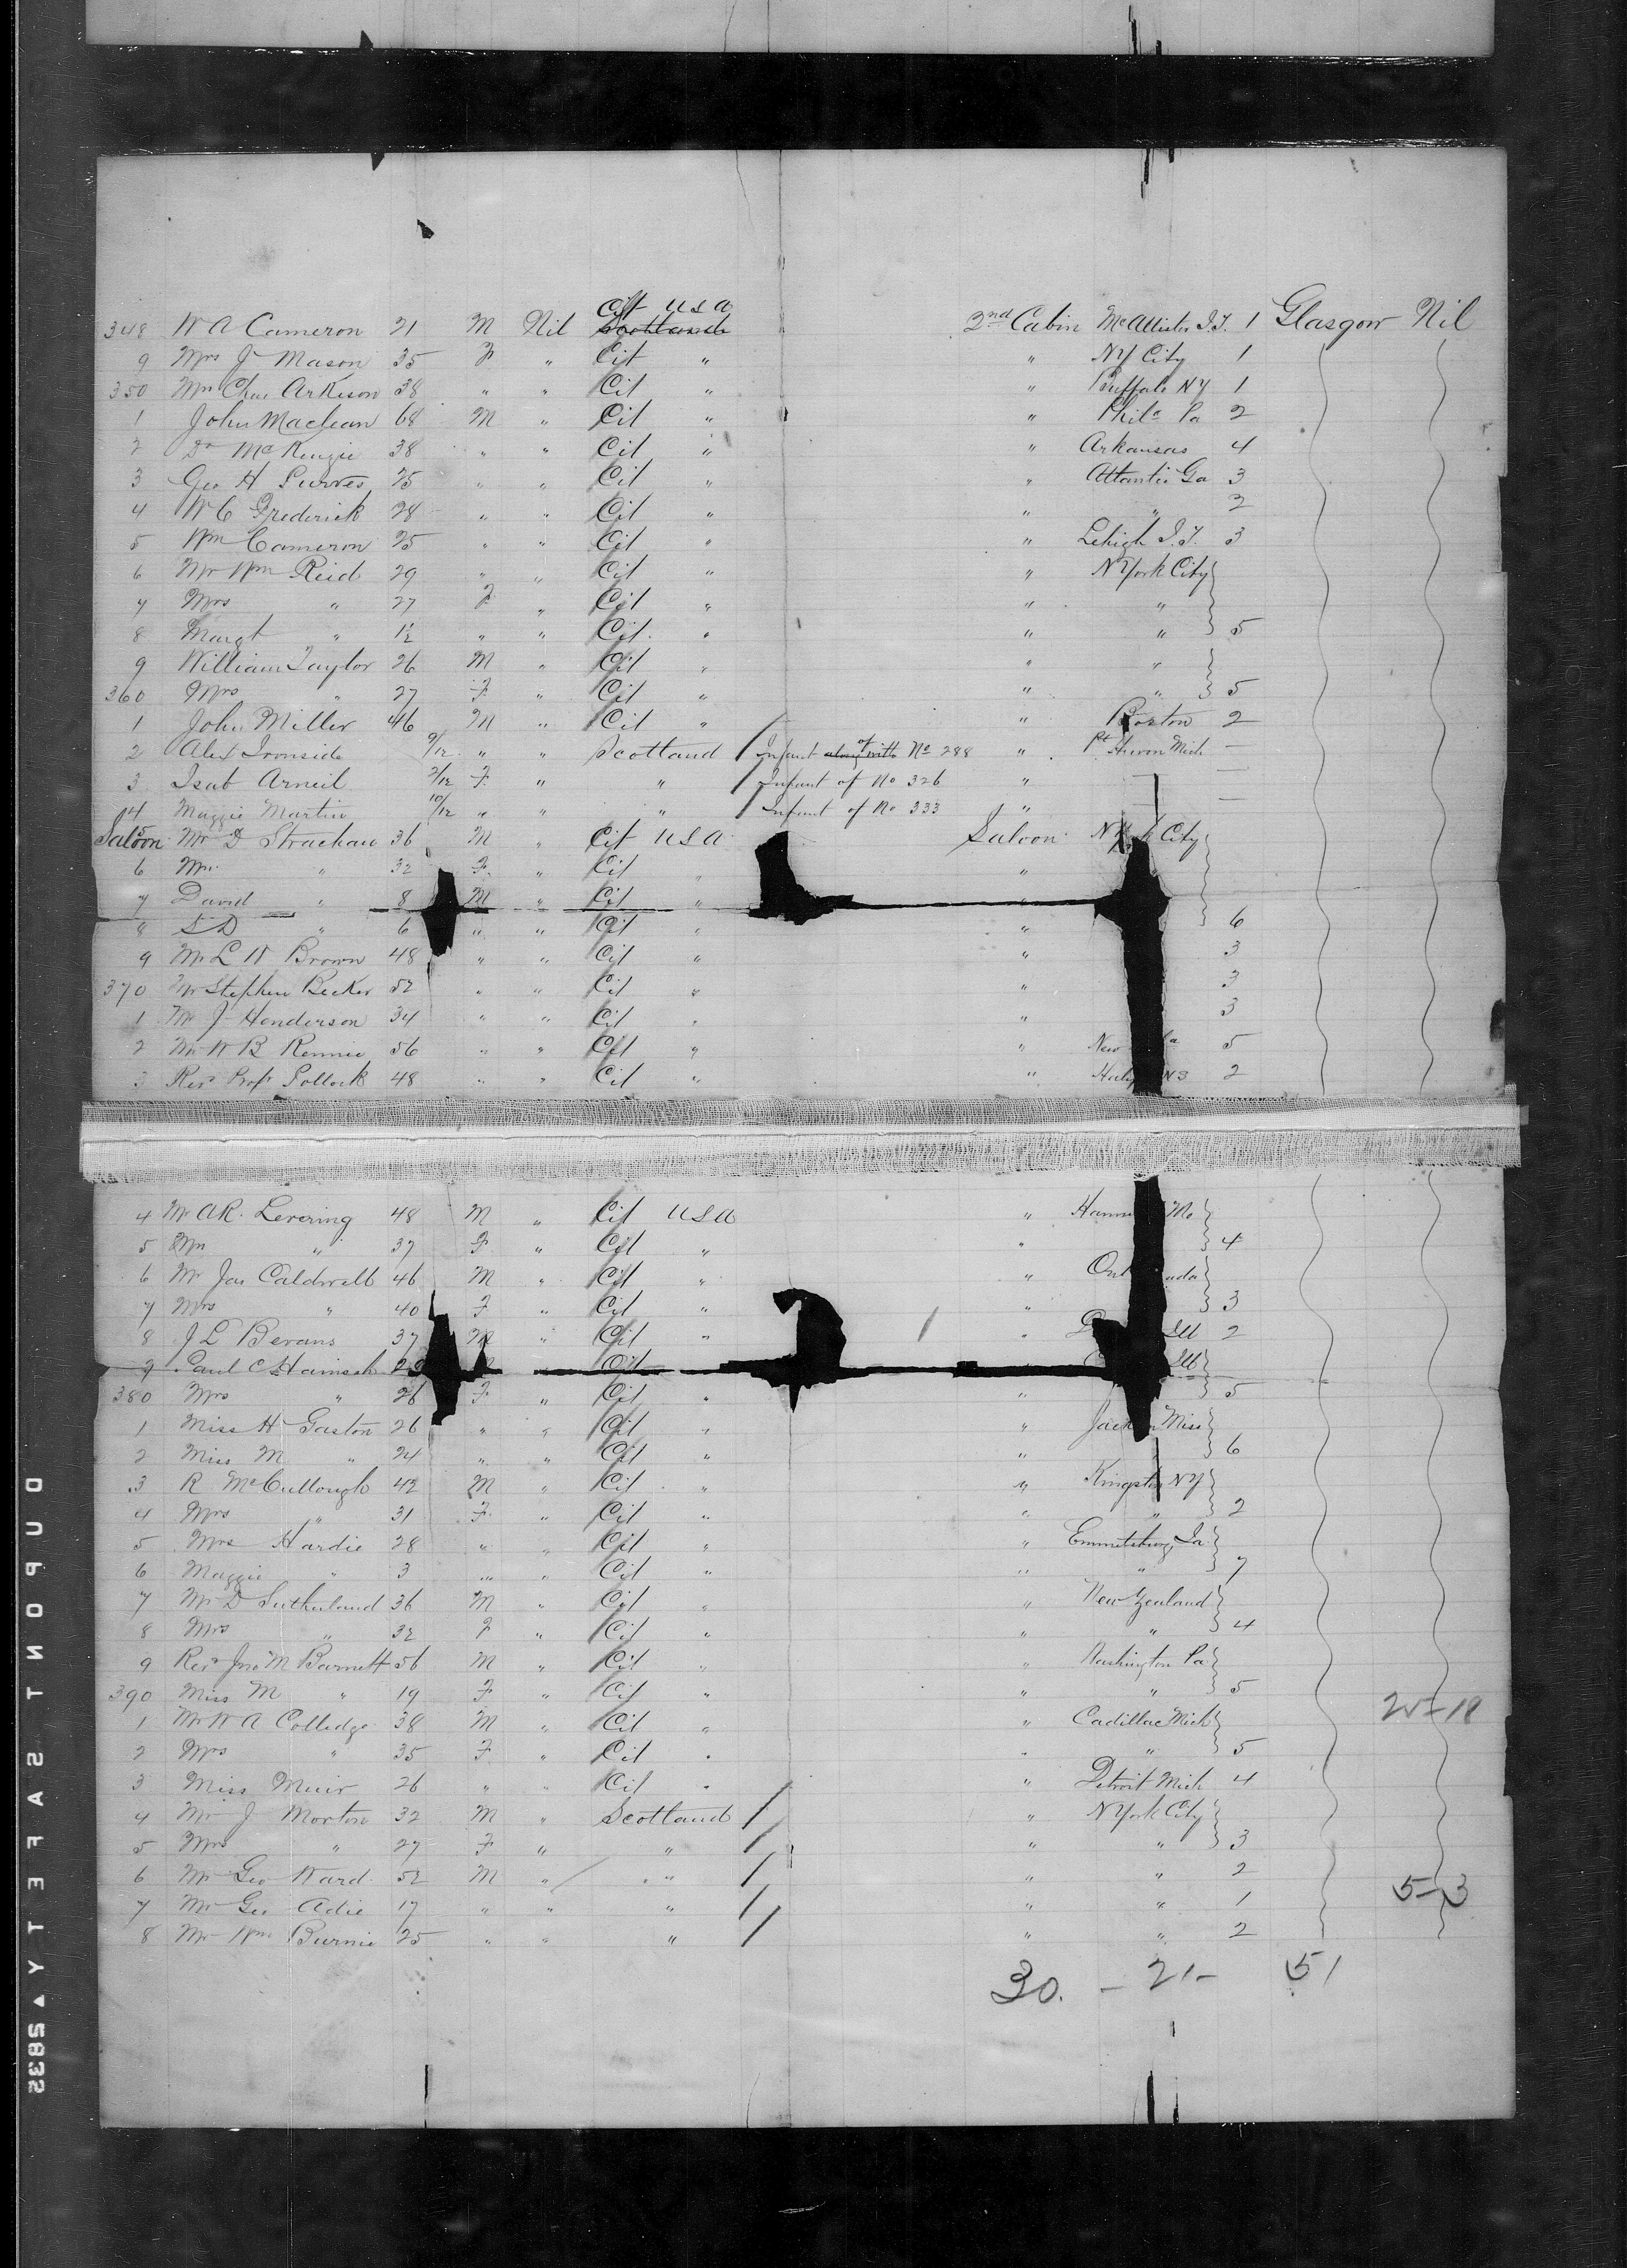 Cit USA
348 W A Cameron 21 M Nil Scotland 2nd Cabin McAllister I.T. 1 Glasgow Nil
9 Mrs J Mason 35 F " Cit " " NY City 1
350 Mrs Chas Arkison 38 " " Cit " " Buffalo NY 1
1 John Maclean 68 M " Cit " " Phila Pa 2
2 Dr McKenzie 38 " " Cit " " Arkansas 4
3 Geo H Purves 25 " " Cit " " Atlanta Ga 3
4 W C Frederick 28 " " Cit " " " 2
5 Wm Cameron 25 " " Cit " " Lehigh I.T. 3
6 Mr Wm Reid 29 " " Cit " " N York City
7 Mrs " 27 F " Cit " " "
8 Margt " 1½ " " Cit " " " 5
9 William Taylor 26 M " Cit " " "
360 Mrs " 27 F " Cit " " " 5
1 John Miller 46 M " Cit " " Boston 2
2 Alex Ironside 9/12 " " Scotland Infant along with of No 288 " Pt Huron Mich —
3 Isab Arneil 2/12 F " " Infant of No 326 " —
4 Maggie Martin 10/12 " " " Infant of No 333 " —
Saloon 5 Mr D Strachan 36 M " Cit USA Saloon N York City
6 Mrs " 32 F " Cit " "
7 David " 8 M " Cit " "
8 S D " 6 " " Cit " " 6
9 Mr L W Brown 48 " " Cit " " 3
370 Mr Stephen Becker 52 " " Cit " " 3
1 Mr J Henderson 34 " " Cit " " 3
2 Mr W B Rennie 56 " " Cit " " New la 5
3 Revd Profr Pollock 48 " " Cit " " Halif NS 2
4 Mr A R. Levering 48 M " Cit USA " Hanni Mo
5 Mrs " 37 F " Cit " " 4
6 Mr Jas Caldwell 46 M " Cit " " Ont ada
7 Mrs " 40 F " Cit " " 3
8 J L Bevans 37 M " Cit " " Ill 2
9 Paul C Cit Ill
380 Mrs " 26 F " Cit " " 5
1 Miss H Gaston 26 " " Cit " " Jackson Miss
2 Miss M " 24 " " Cit " " 6
3 R McCullough 42 M " Cit " " Kingston NY
4 Mrs " 31 F " Cit " " " 2
5 Mrs Hardie 28 " " Cit " " Emmetsburg Ia
6 Maggie " 3 " " Cit " " " 7
7 Mr D Sutherland 36 M " Cit " " New Zealand
8 Mrs " 32 F " Cit " " " 4
9 Revd Jno M Barnett 56 M " Cit " " Washington Pa
390 Miss M " 19 F " Cit " " " 5
1 Mr W A Colledge 38 M " Cit " " Cadillac Mich
2 Mrs " 35 F " Cit " " " 5
3 Miss Muir 26 " " Cit " " Detroit Mich 4
4 Mr J Morton 32 M " Scotland " N York City
5 Mrs " 27 F " " " " 3
6 Mr Geo Ward 52 M " " " " 2
7 Mr Geo Adie 17 " " " " " 1 5-3
8 Mr Wm Burnie 25 " " " " " 2
30. - 21 - 51
DUPONT SAFETY ▲ 5832